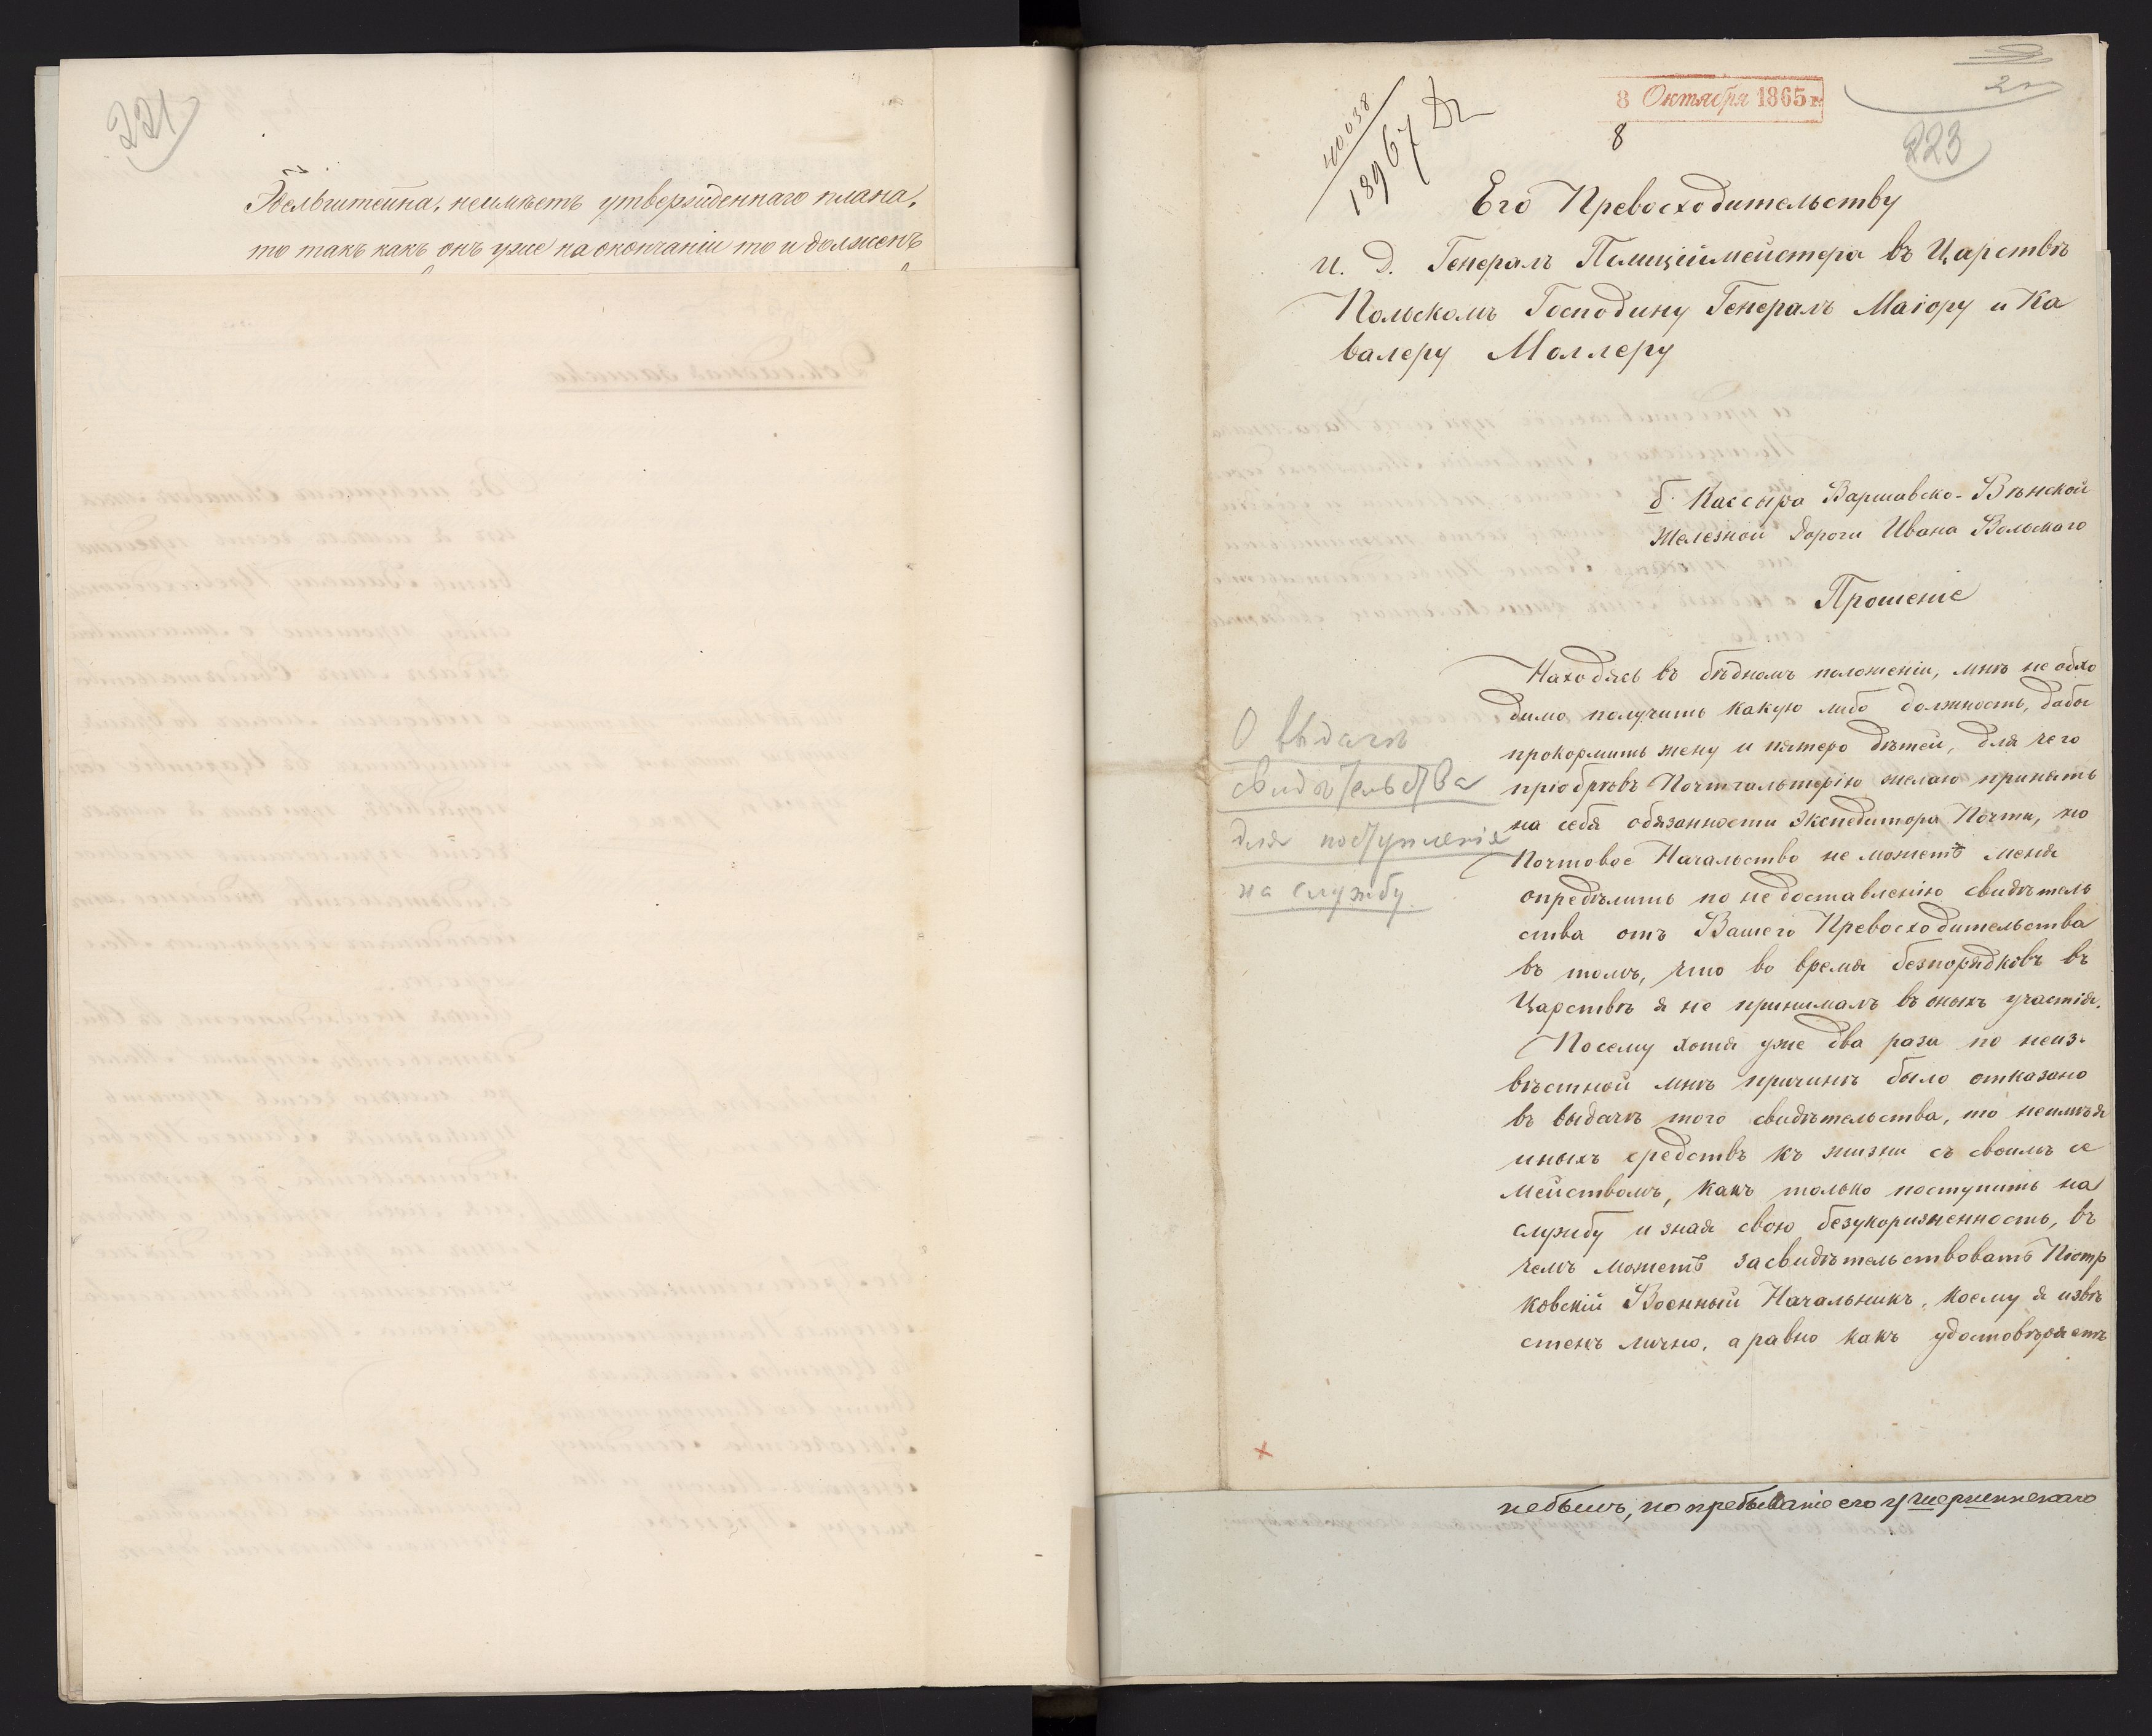 221
Эдельштейна, неимѣетъ утвержденнаго плана,
то такъ какъ онъ уже на окончаніи то и долженъ
40038
18967
8 Октября 1865 г.
8
223
Его Превосходительству
и. д. Генералъ Полиціймейстера въ Царствѣ
Польскомъ Господину Генералъ Маіору и Ка
валеру Моллеру
б. Кассыра Варшавско-Вѣнской
Железной Дороги Ивана Вольскаго
Прошеніе
О выдачѣ
свидѣтельства
для поступленія
на службу
Находясь въ бѣдномъ положеніи, мнѣ необхо
димо получить какую либо должность, дабы
прокормить жену и пятеро дѣтей, для чего
пріобрѣвъ Почтгальтерію желаю принять
на себя обязанности Экспедитора Почты, но
Почтовое Начальство не можетъ меня
опредѣлить по недоставленію свидѣтель
ства отъ Вашего Превосходительства
въ томъ, что во время безпорядковъ въ
Царствѣ я не принималъ въ оныхъ участія.
Посему хотя уже два раза по неиз-
вѣстной мнѣ причинѣ было отказано
въ выдачѣ того свидѣтельства, то неимѣя
иныхъ средствъ къ жизни съ своимъ се
мействомъ, какъ только поступить на
службу и зная свою безукоризненность, въ
чемъ можетъ засвидѣтельствовать Піотр
ковскій Военный Начальникъ, коему я извѣ
стенъ лично, а равно какъ удостовѣряетъ
небылъ, по пребываніе его у